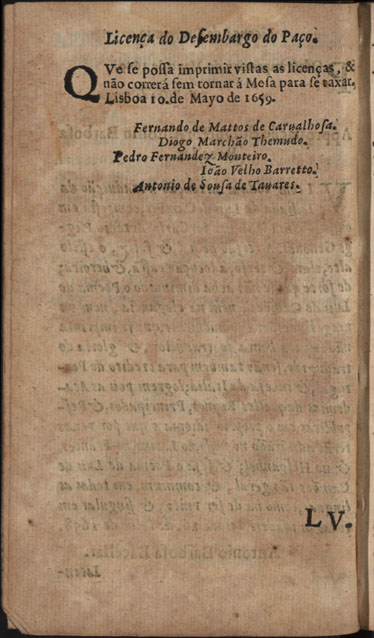 Licença do Desembargo do Paço.
QVe se possa imprimir vistas as licenças, &
não correrá sem tornar á Mesa para se taxar.
Lisboa 10. de Mayo de 1659.
Fernando de Mattos de Carualhosa.
Diogo Marchão Themudo.
Pedro Fernandez Monteiro.
Ioão Velho Barretto.
Antonio de Sousa de Tauares.
LV.